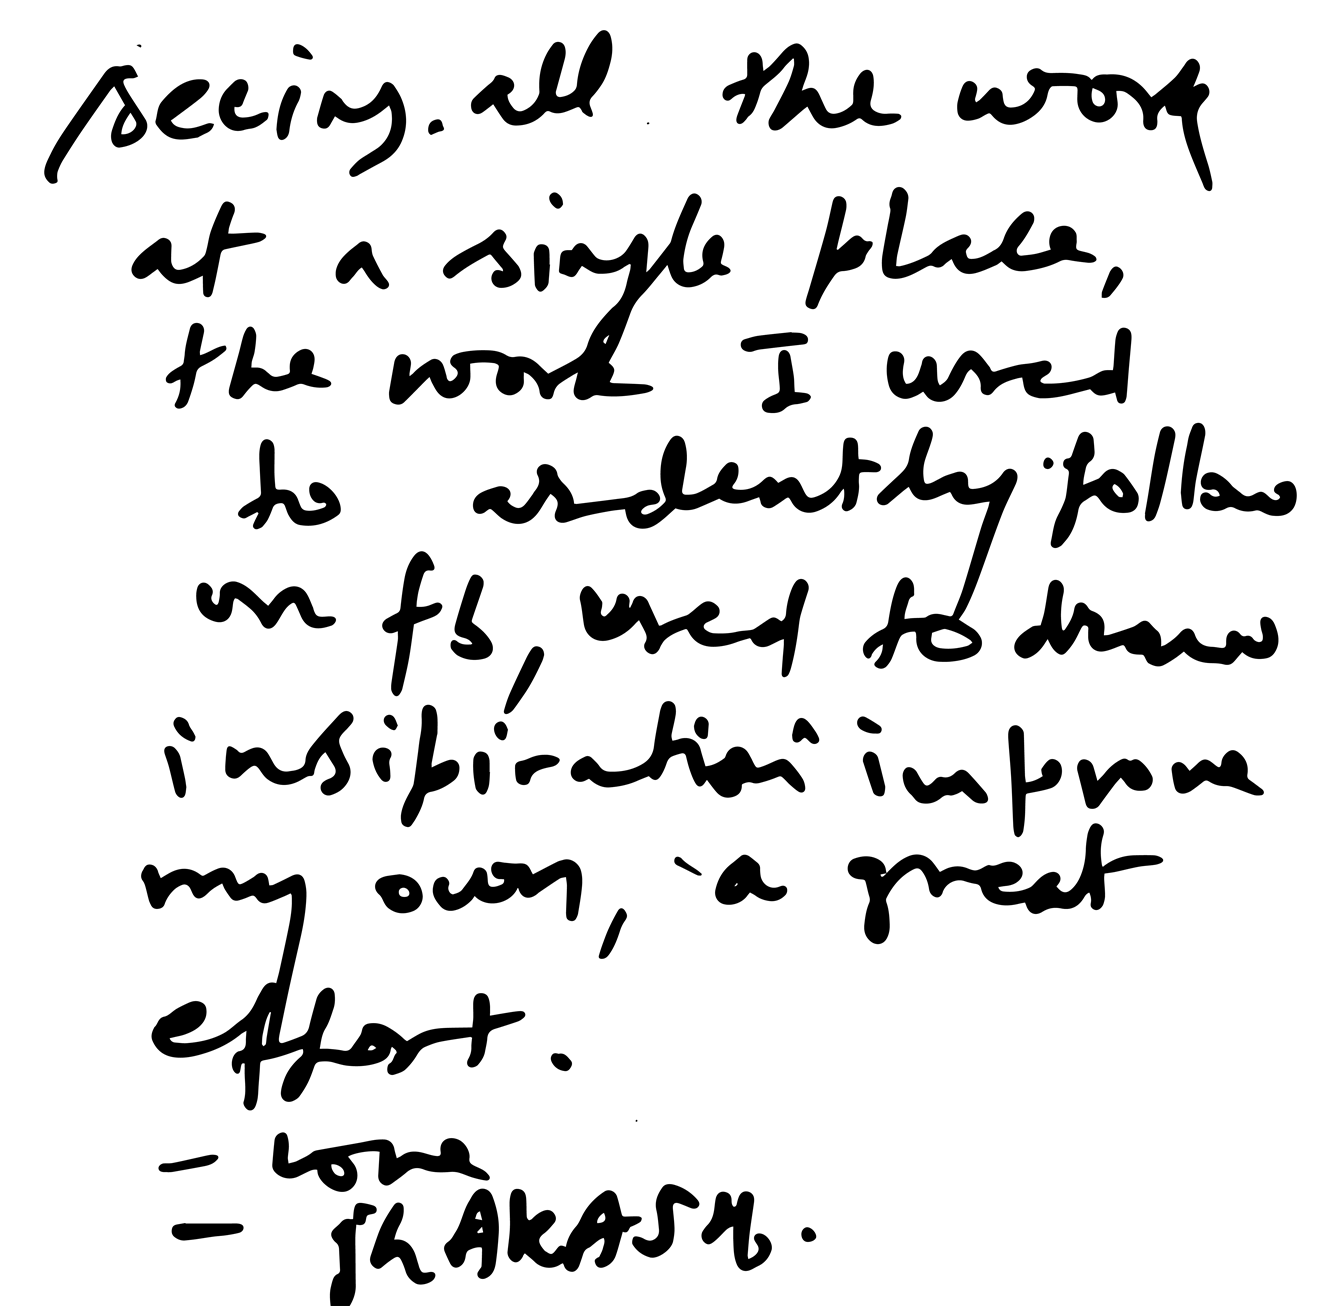 seeing all the work
at a single place,
the work I used
to ardently follow
on fb, used to draw
inspiration improve
my own, a great
effort.
- love
- JhAKASH.